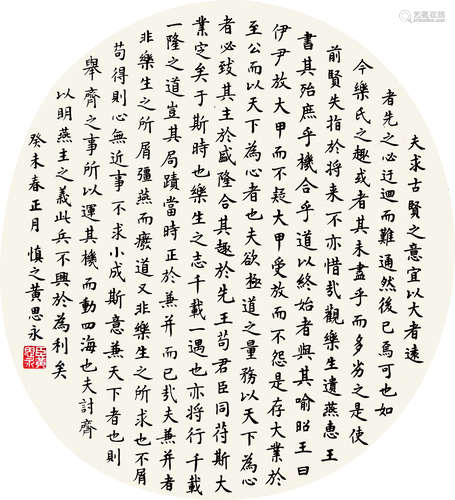 夫求古賢之意宜以大者遠
者先之必迂迴而難通然後已焉可也如
今樂氏之趣或者其未盡乎而多劣之是使
前賢失指於將来不亦惜哉觀樂生遺燕惠王
書其殆庶乎機合乎道以終始者與其喻昭王曰
伊尹放大甲而不疑大甲受放而不怨是存大業於
至公而以天下為心者也夫欲極道之量務以天下為心
者必致其主於盛隆合其趣於先王苟君臣同苻斯大
業定矣于斯時也樂生之志千載一遇也亦將行千載
一隆之道豈其局蹟當時正於兼并而已哉夫兼并者
非樂生之所屑彊燕而癈道又非樂生之所求也不屑
苟得則心無近事不求小成斯意兼天下者也則
舉齊之事所以運其機而動四海也夫討齊
以明燕主之義此兵不興於為利矣
癸未春正月 慎之黃思永